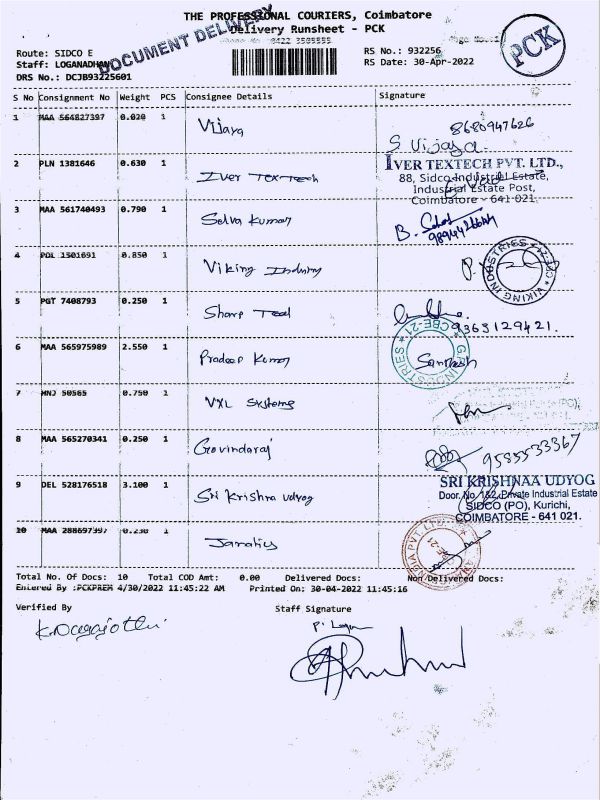 THE PROFESSIONAL COURIERS, Coimbatore
Delivery Runsheet - PCK
DOCUMENT DELIVERY
PCK
Route: SIDCO E
RS No.: 932256
Staff: LOGANADHAN
RS Date: 30-Apr-2022
DRS No.: DCJB93225601
S No Consignment No Weight PCS Consignee Details Signature
1 MAA 564827397 0.020 1 Vijaya
8680947626
S Vijaya
2 PLN 1381646 0.630 1 Iver Tex Tech
IVER TEXTECH PVT. LTD.,
88, Sidco Industrial Estate,
Industrial Estate Post,
Coimbatore - 641 021.
3 MAA 561740493 0.790 1 Selva Kumar
B.
4 POL 1501691 0.850 1 Viking Industry
VIKING INDUSTRIES
5 PGT 7408793 0.250 1 Sharp Tool
9363129421.
6 MAA 565975989 2.550 1 Pradeep Kumar
INDUSTRIES CBE-21
Santhosh
7 MNJ 50565 0.750 1 VXL Systems
8 MAA 565270341 0.250 1 Govindaraj
9585533367
9 DEL 528176518 3.100 1 Sri Krishna udyog
SRI KRISHNAA UDYOG
Door.No.182, Private Industrial Estate
SIDCO (PO), Kurichi,
COIMBATORE - 641 021.
10 MAA 288697397 0.230 1
INDIA PVT LTD
Total No. Of Docs: 10 Total COD Amt: 0.00 Delivered Docs: Non Delivered Docs:
Entered By :PCKPREM 4/30/2022 11:45:22 AM Printed On: 30-04-2022 11:45:16
Verified By Staff Signature